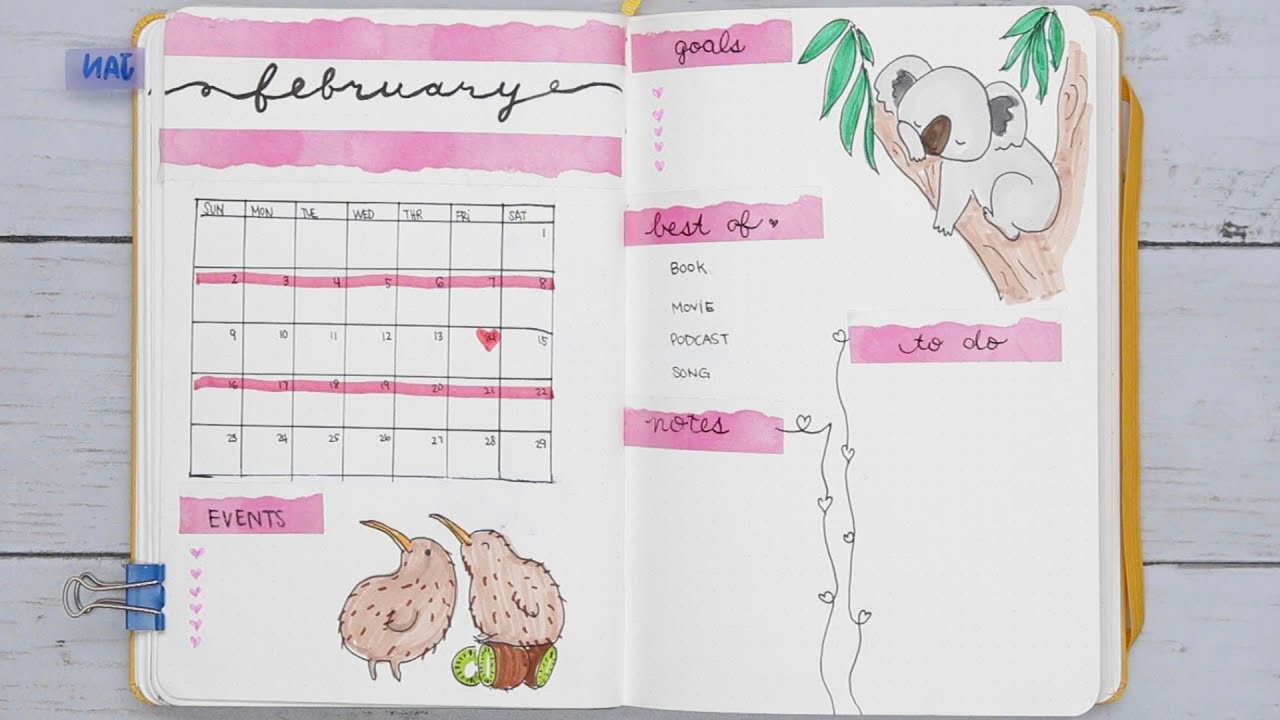 JAN
february
SUN MON TUE WED THR FRI SAT
1
2 3 4 5 6 7 8
9 10 11 12 13 14 15
16 17 18 19 20 21 22
23 24 25 26 27 28 29
EVENTS
goals
best of
BOOK
MOVIE
PODCAST
SONG
notes
to do